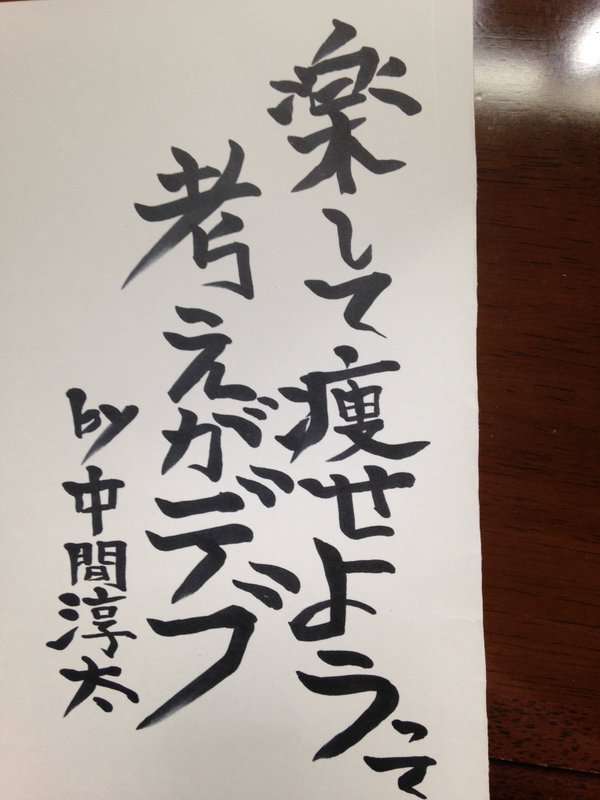 楽して痩せようって
考えがデブ
by中間淳太